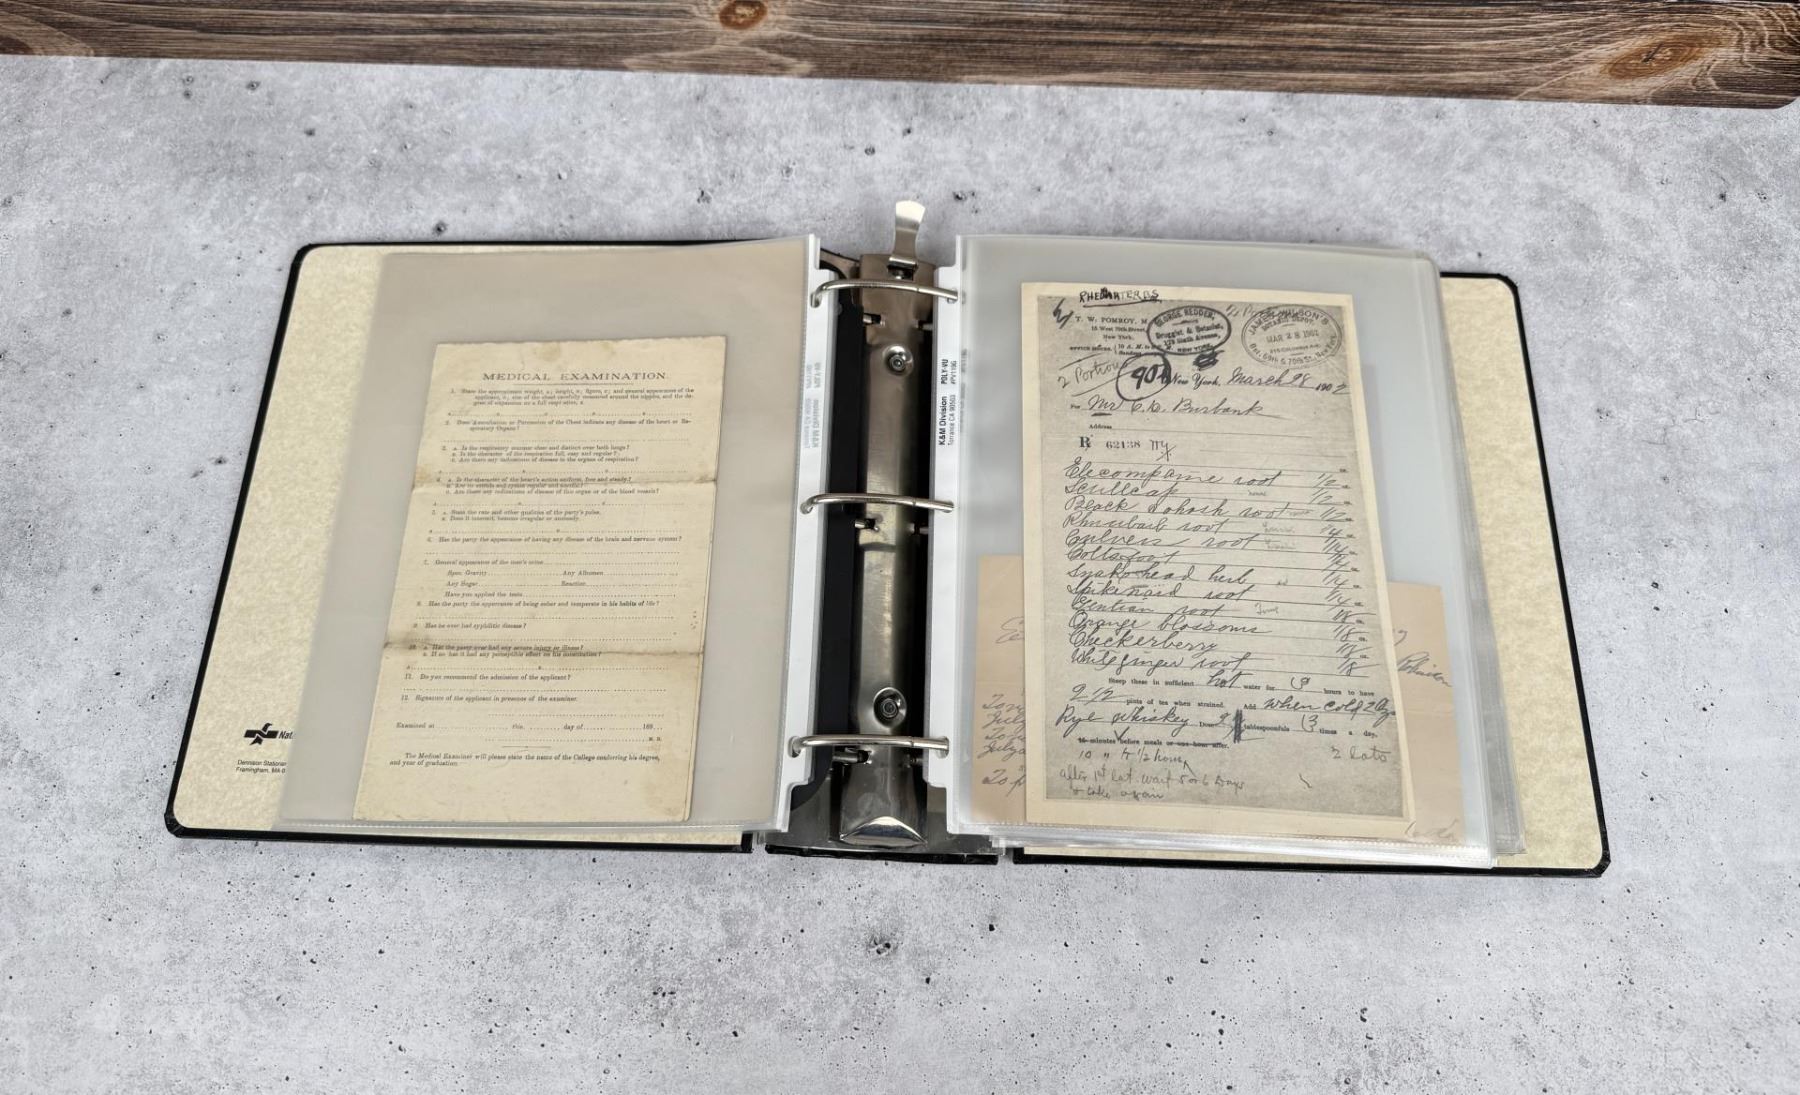 MEDICAL EXAMINATION.
1. State the approximate weight, a; height, b; figure, c; and general appearance of the
applicant, d; size of the chest carefully measured around the nipples, and the de-
gree of expansion on a full respiration, e.
2. Does Auscultation or Percussion of the Chest indicate any disease of the heart or Re-
spiratory Organs?
3. a Is the respiratory murmur clear and distinct over both lungs?
b. Is the character of the respiration full, easy and regular?
c. Are there any indications of disease in the organs of respiration?
4. a. Is the character of the heart's action uniform, free and steady?
b. Are its sounds and rhythm regular and normal?
c. Are there any indications of disease of this organ or of the blood vessels?
5. a. State the rate and other qualities of the party's pulse.
b. Does it intermit, become irregular or unsteady.
6. Has the party the appearance of having any disease of the brain and nervous system?
7. General appearance of the men's urine
Spec. Gravity Any Albumen
Any Sugar Reaction
Have you applied the tests
8. Has the party the appearance of being sober and temperate in his habits of life?
9. Has he ever had syphilitic disease?
10. a. Has the party ever had any severe injury or illness?
b. If so has it had any perceptible effect on his constitution?
11. Do you recommend the admission of the applicant?
12. Signature of the applicant in presence of the examiner.
Examined at this day of 189
M. D.
The Medical Examiner will please state the name of the College conferring his degree,
and year of graduation.
Nat
Dennison Stationer
Framingham, MA 0
K&M Division POLY-VU
Torrance CA 90503 #PV119G
T. W. POMROY, M
15 West 70th Street,
New York.
OFFICE HOURS, 10 A. M. to
Sundays
GEORGE REDDER,
Druggist & Botanist,
176 Ninth Avenue,
NEW YORK
JAMES WILSON'S
BOTANIC DEPOT,
MAR 28 1902
215 COLUMBUS AVE.
Bet. 69th & 70th St., New York
2 Portions
90c
New York, March 28 1902
For Mr C. D. Burbank
Address
R 62138
Elecompaine root 1/2
Scullcap 1/2
Black Cohosh root 1/2
Rhubarb root 1/4
Culvers root 1/4
Coltsfoot 1/4
Snakehead herb 1/4
Spikenard root 1/4
Gentian root 1/8
Orange blossoms 1/8
Checkerberry 1/8
White ginger root 1/8
Steep these in sufficient hot water for 3 hours to have
2 1/2 pints of tea when strained. Add When cold 2 oz
Rye Whiskey Dose 2 tablespoonfuls 3 times a day.
15 minutes before meals or one hour after.
10 " & 1/2 hour 2 lots
after 1st lot wait 5 or 6 Days
& take again